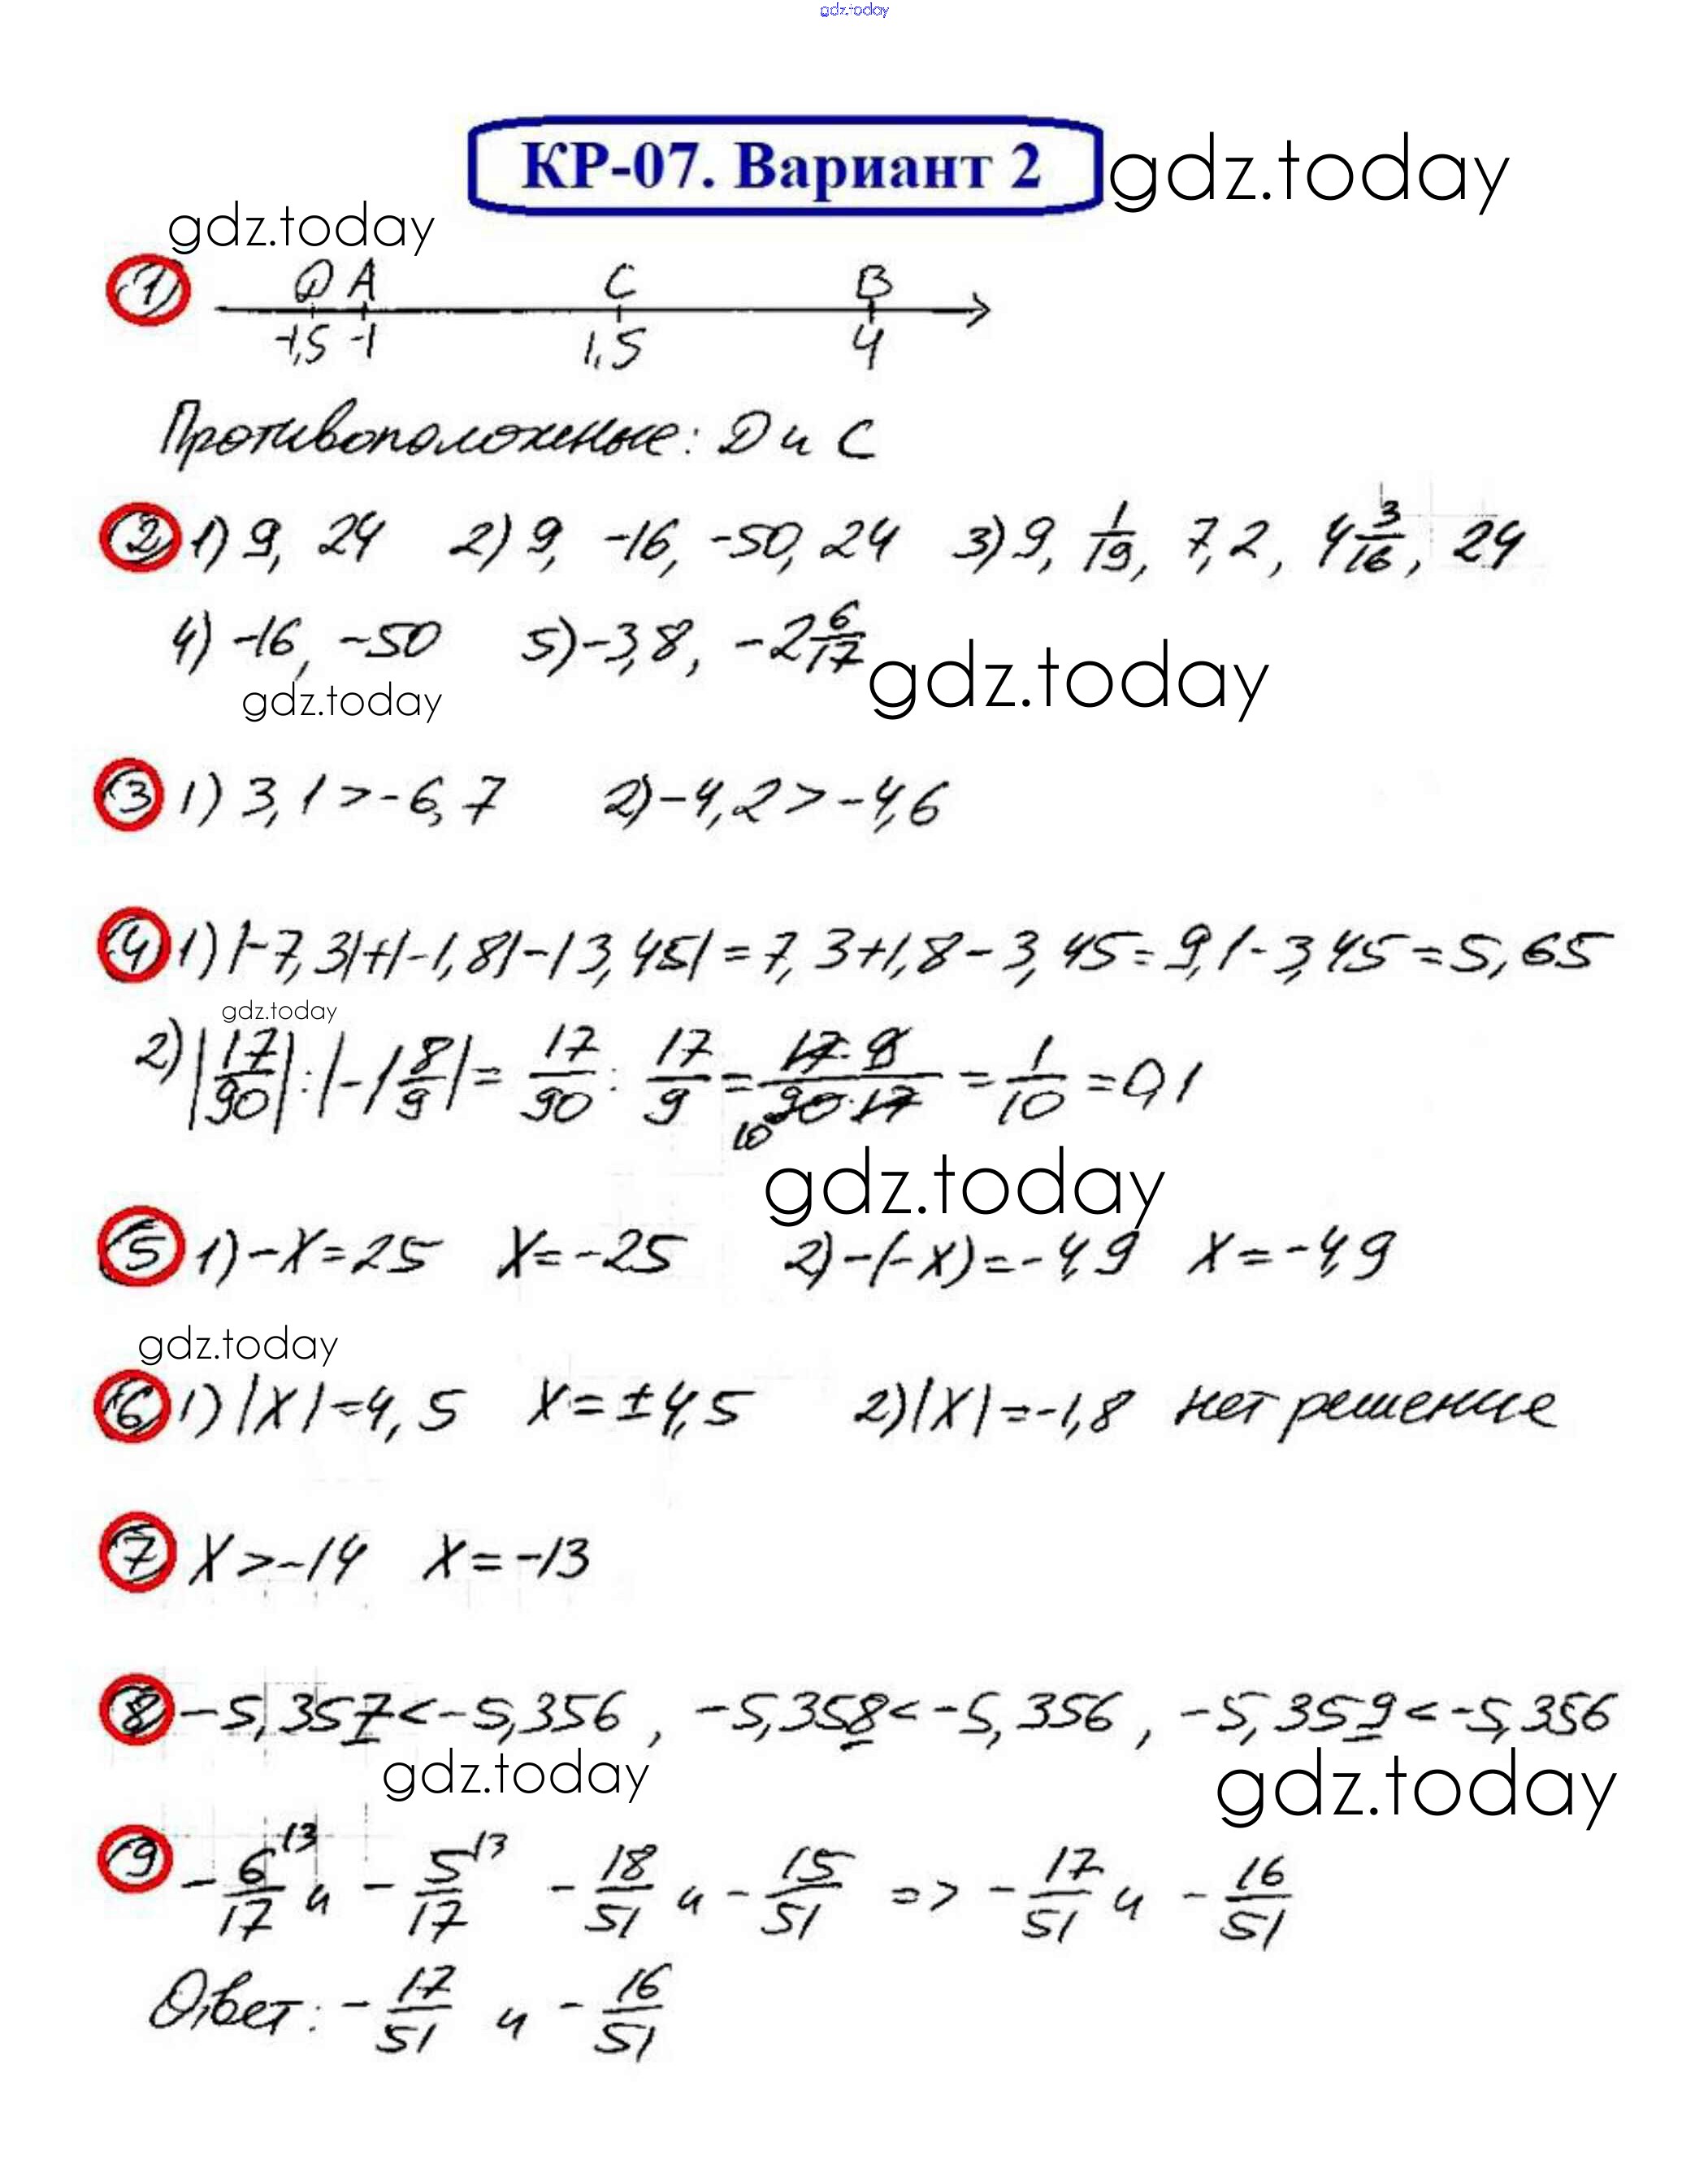 gdz.today
КР-07. Вариант 2 gdz.today
gdz.today
1 D A C B
-1,5 -1 1,5 4
Противоположные: D и C
2 1) 9, 24 2) 9, -16, -50, 24 3) 9, 1/19, 7,2, 4 3/16, 24
4) -16, -50 5) -3,8, -2 6/17 gdz.today
gdz.today
3 1) 3,1 > -6,7 2) -4,2 > -4,6
4 1) |-7,3|+|-1,8|-|3,45| = 7,3+1,8-3,45 = 9,1-3,45 = 5,65
gdz.today
2) |17/90| : |-1 8/9| = 17/90 : 17/9 = 17·9/90·17 10 = 1/10 = 0,1
gdz.today
5 1) -x=25 x=-25 2) -(-x)=-4,9 x=-4,9
gdz.today
6 1) |x|=4,5 x=±4,5 2) |x|=-1,8 нет решение
7 x>-14 x=-13
8 -5,357<-5,356, -5,358<-5,356, -5,359<-5,356
gdz.today gdz.today
9 -6/17 \3 и -5/17 \3 -18/51 и -15/51 => -17/51 и -16/51
Ответ: -17/51 и -16/51